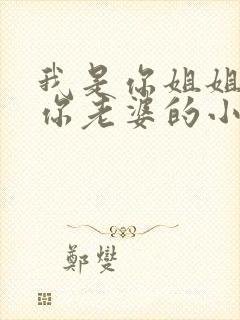 我是你姐姐
你老婆的小
鄭燮